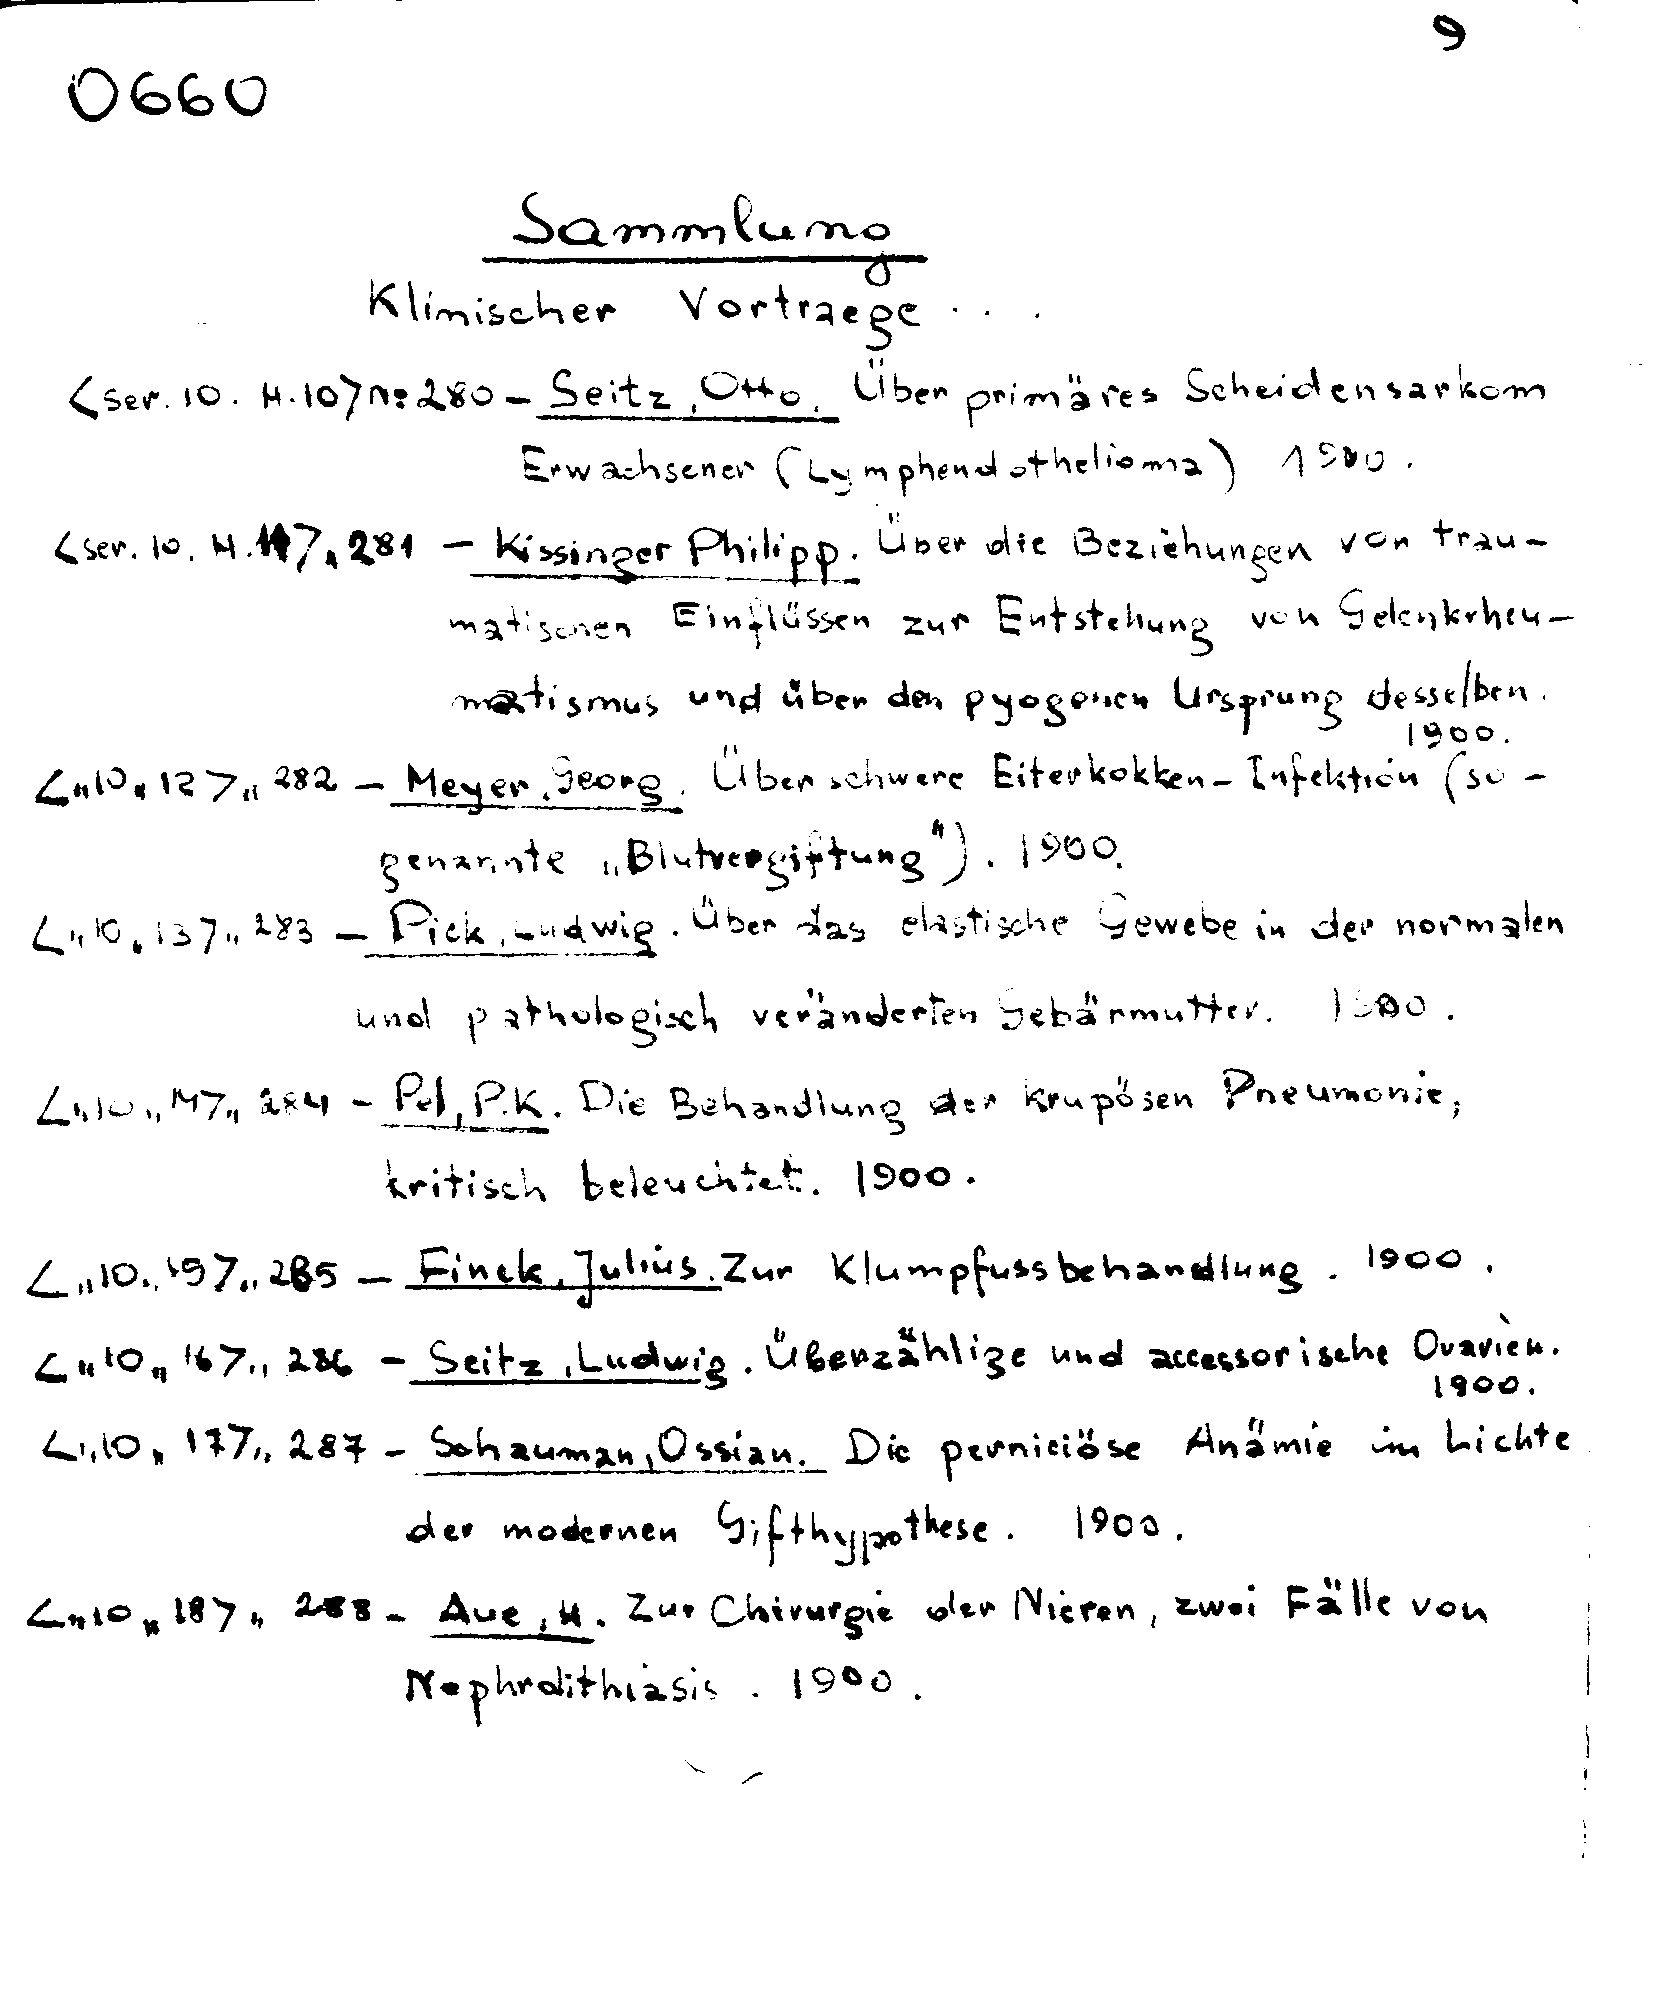 9
0660
Sammlung
Klinischer Vortraege . . .
<ser. 10. H. 10> No 280 – Seitz, Otto. Über primäres Scheidensarkom
Erwachsener (Lymphendothelioma) 1900.
<ser. 10. H. 11> „ 281 – Kissinger Philipp. Über die Beziehungen von trau-
matischen Einflüssen zur Entstehung von Gelenkrheu-
matismus und über den pyogenen Ursprung desselben.
1900.
<„ 10 „ 12> „ 282 – Meyer, Georg. Über schwere Eiterkokken-Infektion (so-
genannte „Blutvergiftung"). 1900.
<„ 10 „ 13> „ 283 – Pick, Ludwig. Über das elastische Gewebe in der normalen
und pathologisch veränderten Gebärmutter. 1900.
<„ 10 „ 14> „ 284 – Pel, P.K. Die Behandlung der krupösen Pneumonie,
kritisch beleuchtet. 1900.
<„ 10 „ 15> „ 285 – Finck, Julius. Zur Klumpfussbehandlung. 1900.
<„ 10 „ 16> „ 286 – Seitz, Ludwig. Überzählige und accessorische Ovarien.
1900.
<„ 10 „ 17> „ 287 – Schauman, Ossian. Die perniciöse Anämie im Lichte
der modernen Gifthypothese. 1900.
<„ 10 „ 18> „ 288 – Aue, H. Zur Chirurgie der Nieren, zwei Fälle von
Nephrolithiasis. 1900.